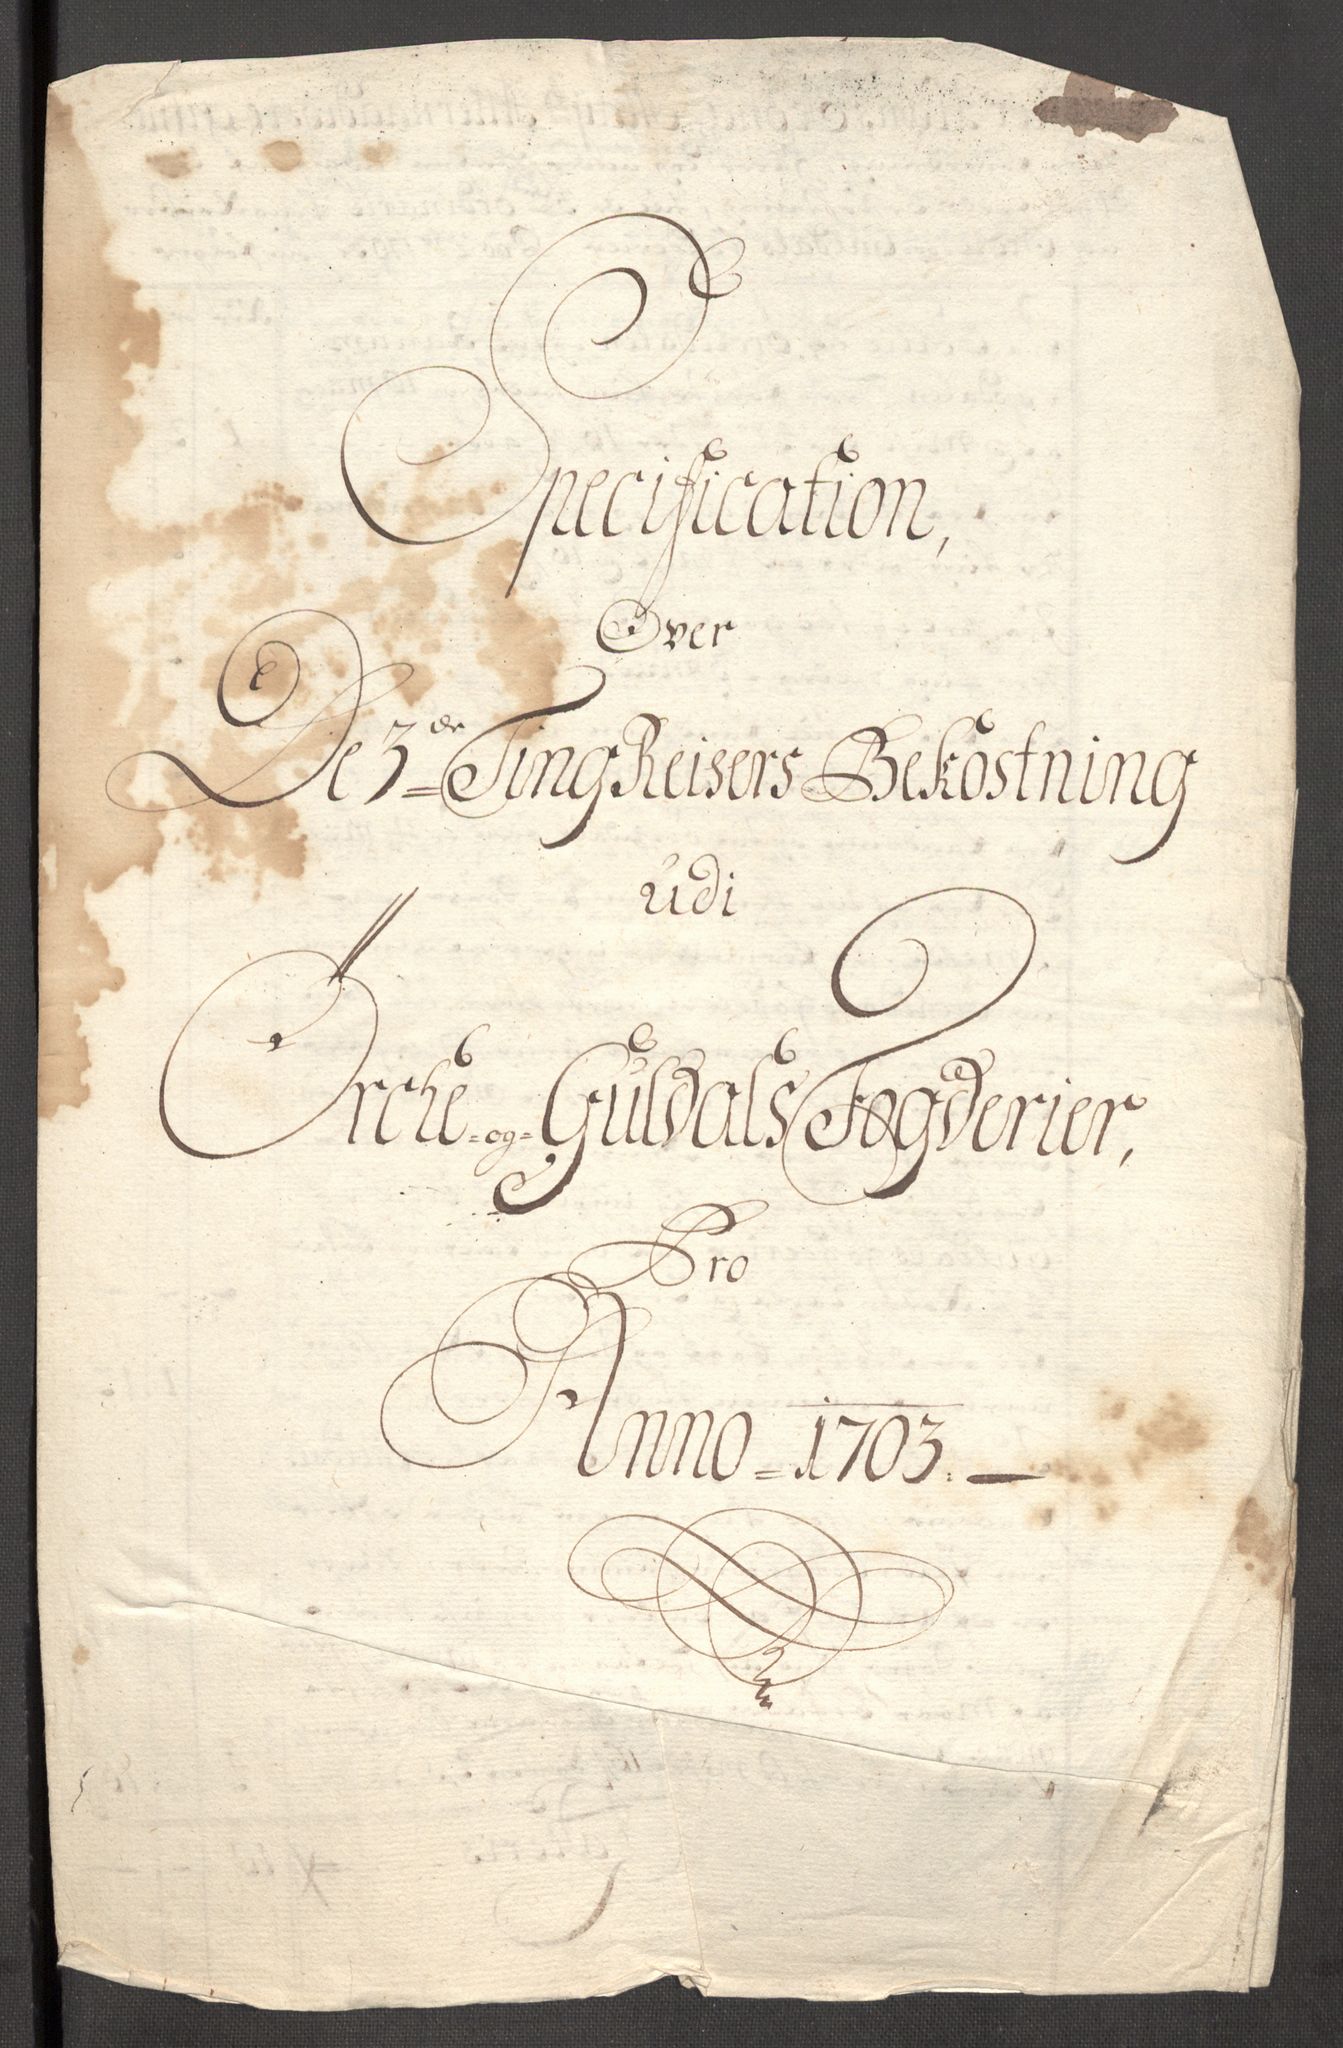 Specification,
Over
De 3de Ting Reisers Bekostning
udi
Örche-og-Güldals Fogderier,
Pro
Anno = 1703.